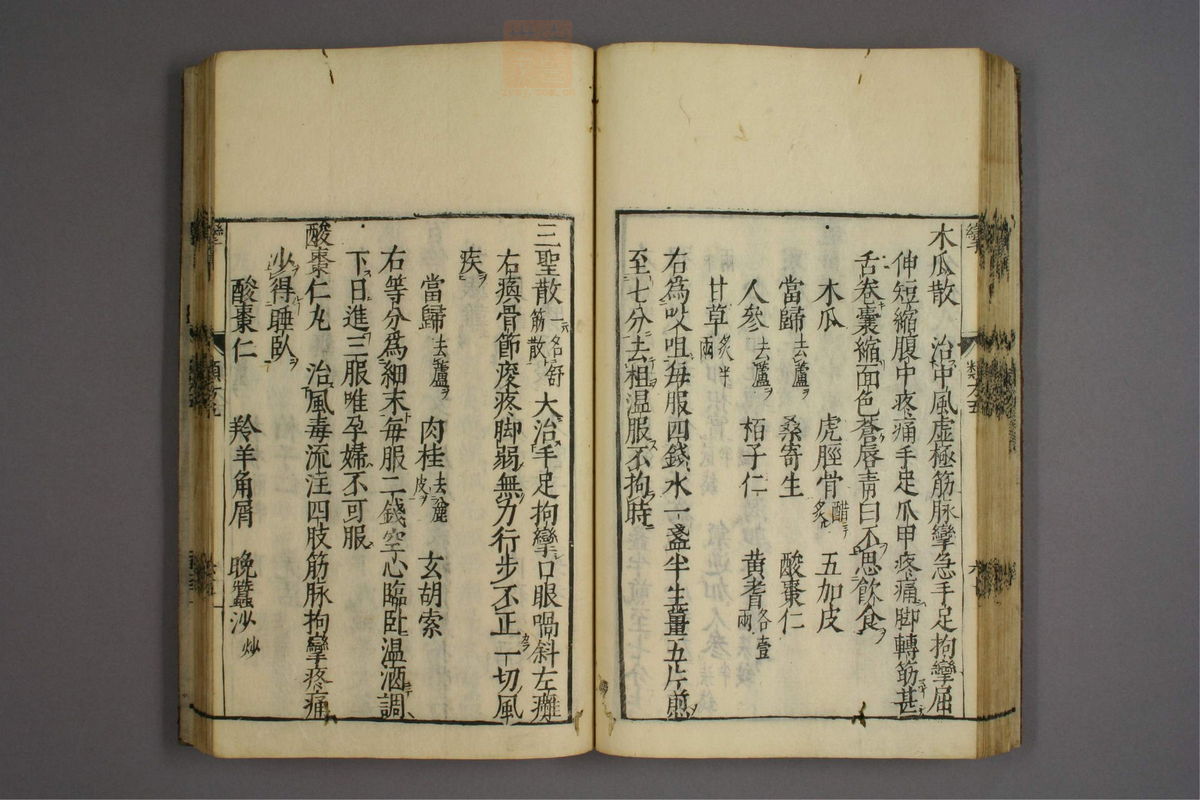 木瓜散　治中風虛極筋脉攣急手足拘攣屈
伸短縮腹中疼痛手足爪甲疼痛脚轉筋甚
舌卷囊縮面色蒼唇青曰不思飲食
木瓜　虎脛骨醋炙　五加皮
當歸去蘆　桑寄生　酸棗仁
人參去蘆　栢子仁　黃耆各壹兩
甘草炙半兩
右為㕮咀每服四錢水一盞半生薑五片煎
至七分去柤温服不拘時
三聖散一名舒筋散　大治手足拘攣口眼喎斜左癱
右瘓骨節痠疼脚弱無力行步不正一切風
疾
當歸去蘆　肉桂去麄皮　玄胡索
右等分為細末每服二錢空心臨卧温酒調
下日進三服唯孕婦不可服
酸棗仁丸　治風毒流注四肢筋脉拘攣疼痛
少得睡卧
酸棗仁　羚羊角屑　晚蠶沙炒